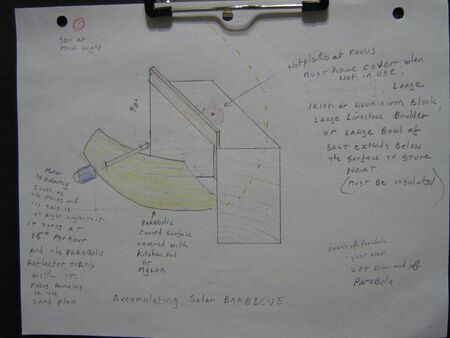 Sun at
Max angle
Hotplate at FOCUS.
MUST have cover when
Not in use.
Large
IRON or Aluminium Block,
Large Limestone Boulder
or Large Bowl of
SALT extends Below
the Surface to Store
HEAT.
(MUST BE Insulated)
90°
Motor
is Exactly
South of
the Focus and
its axis is
at Right angles to it
IT TURNS AT
15° Per hour
And the PARABOLIC
Reflector TURNS
with it.
Focus Remains
in the
Same place
Parabolic
Curved Surface
covered with
Kitchen Foil
or
Mylar
Focus of Parabola
just over
2 FT From end of
Parabola.
Accumulating Solar BARBECUE